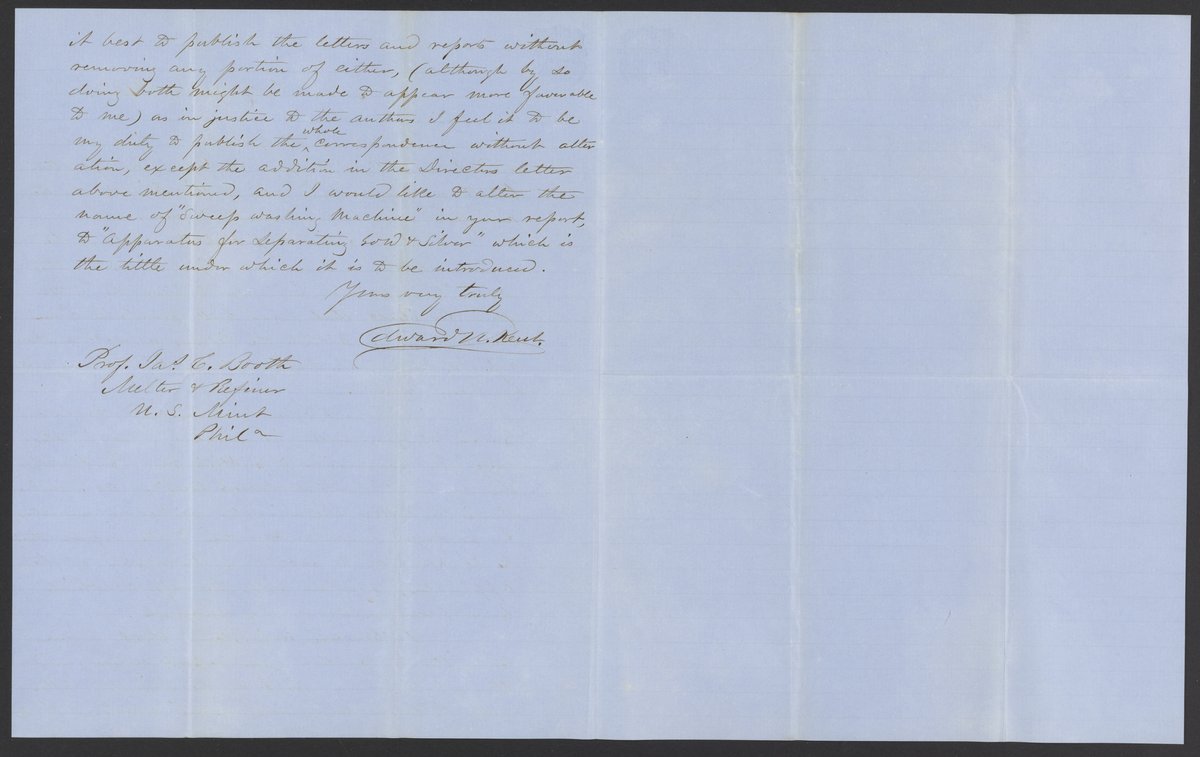 it best to publish the letters and report without
removing any portion of either, (although by so
doing both might be made to appear more favorable
to me) as in justice to the authors I feel it to be
my duty to publish the whole correspondence without alter
ation, except the addition in the Directors letter
above mentioned, and I would like to alter the
name of "Sweep washing Machine" in your report,
to "Apparatus for Separating Gold & Silver" which is
the tittle under which it is to be introduced.
Yours very truly
Edward N. Kent.
Prof. Jas C. Booth
Melter & Refiner
U. S. Mint
Phila